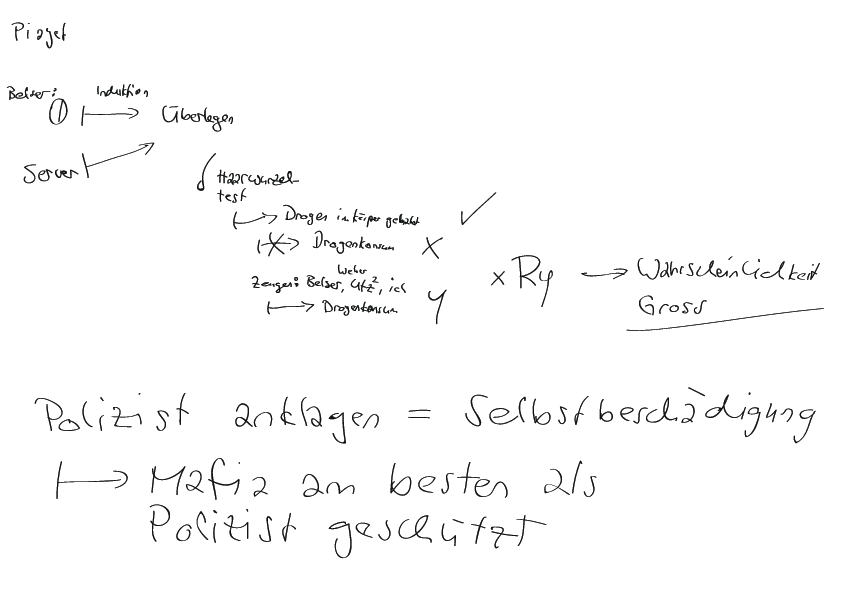 Piaget
Belser: Induktion
⌽ ↦ Überlegen
Server ↦
Haarwurzel
test
↦ Drogen im Körper gehabt ✓
↦ Drogenkonsum x
Weber
Zeugen: Belser, Utz², ich
↦ Drogenkonsum y
x Ry → Wahrscheinlichkeit
Gross
Polizist anklagen = Selbstbeschädigung
↦ Mafia am besten als
Polizist geschützt